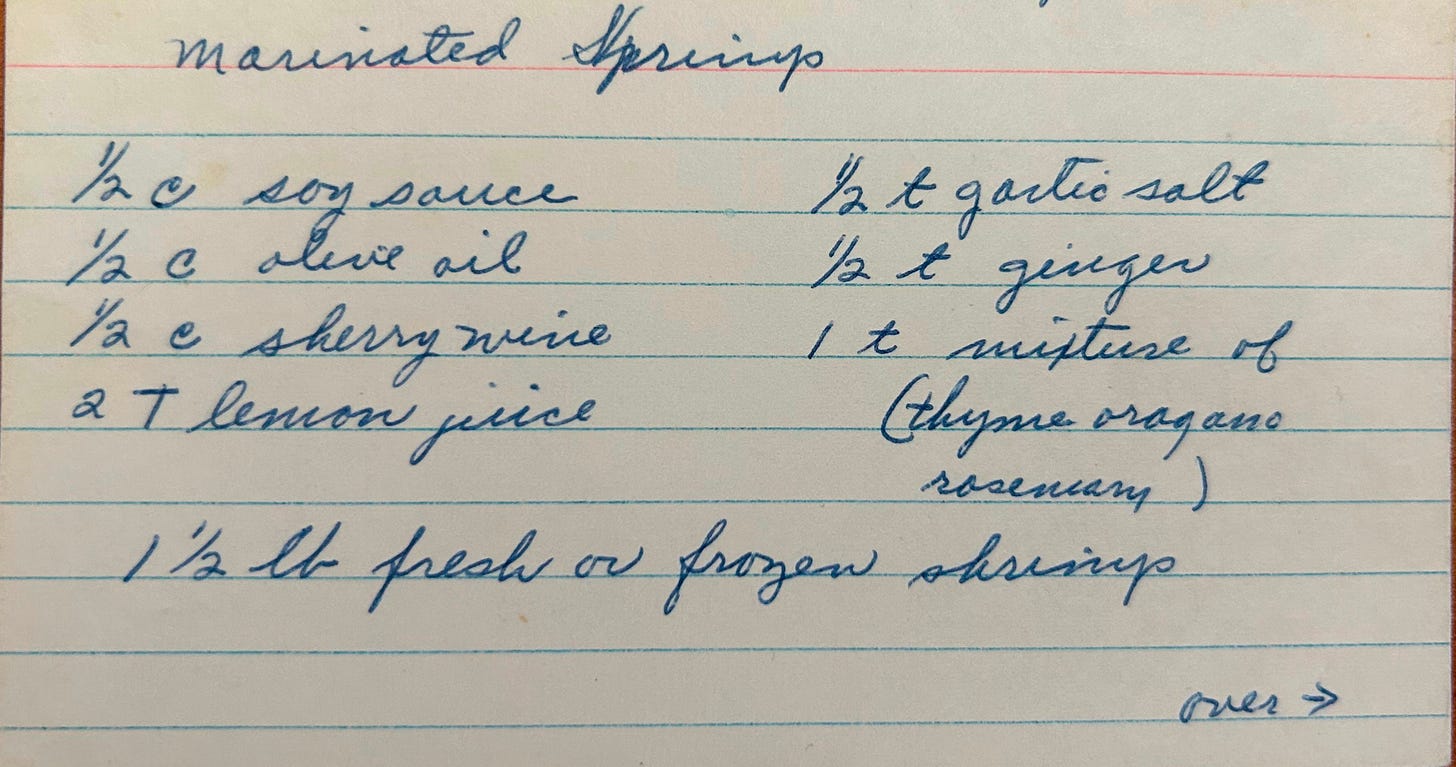 Marinated Shrimp
1/2 c soy sauce
1/2 c olive oil
1/2 c sherry wine
2 T lemon juice
1/2 t garlic salt
1/2 t ginger
1 t mixture of
(thyme oragano
rosemary )
1 1/2 lb fresh or frozen shrimp
over →